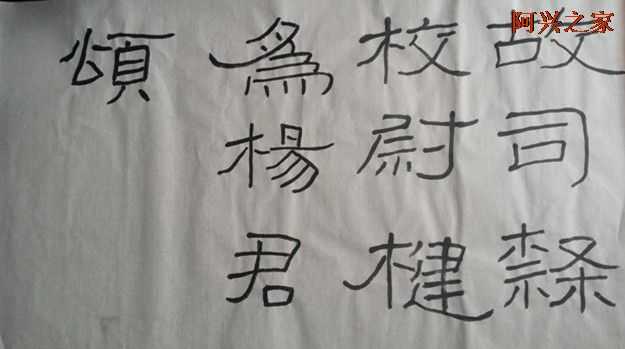 阿兴之家
故司隸
校尉楗
為楊君
頌